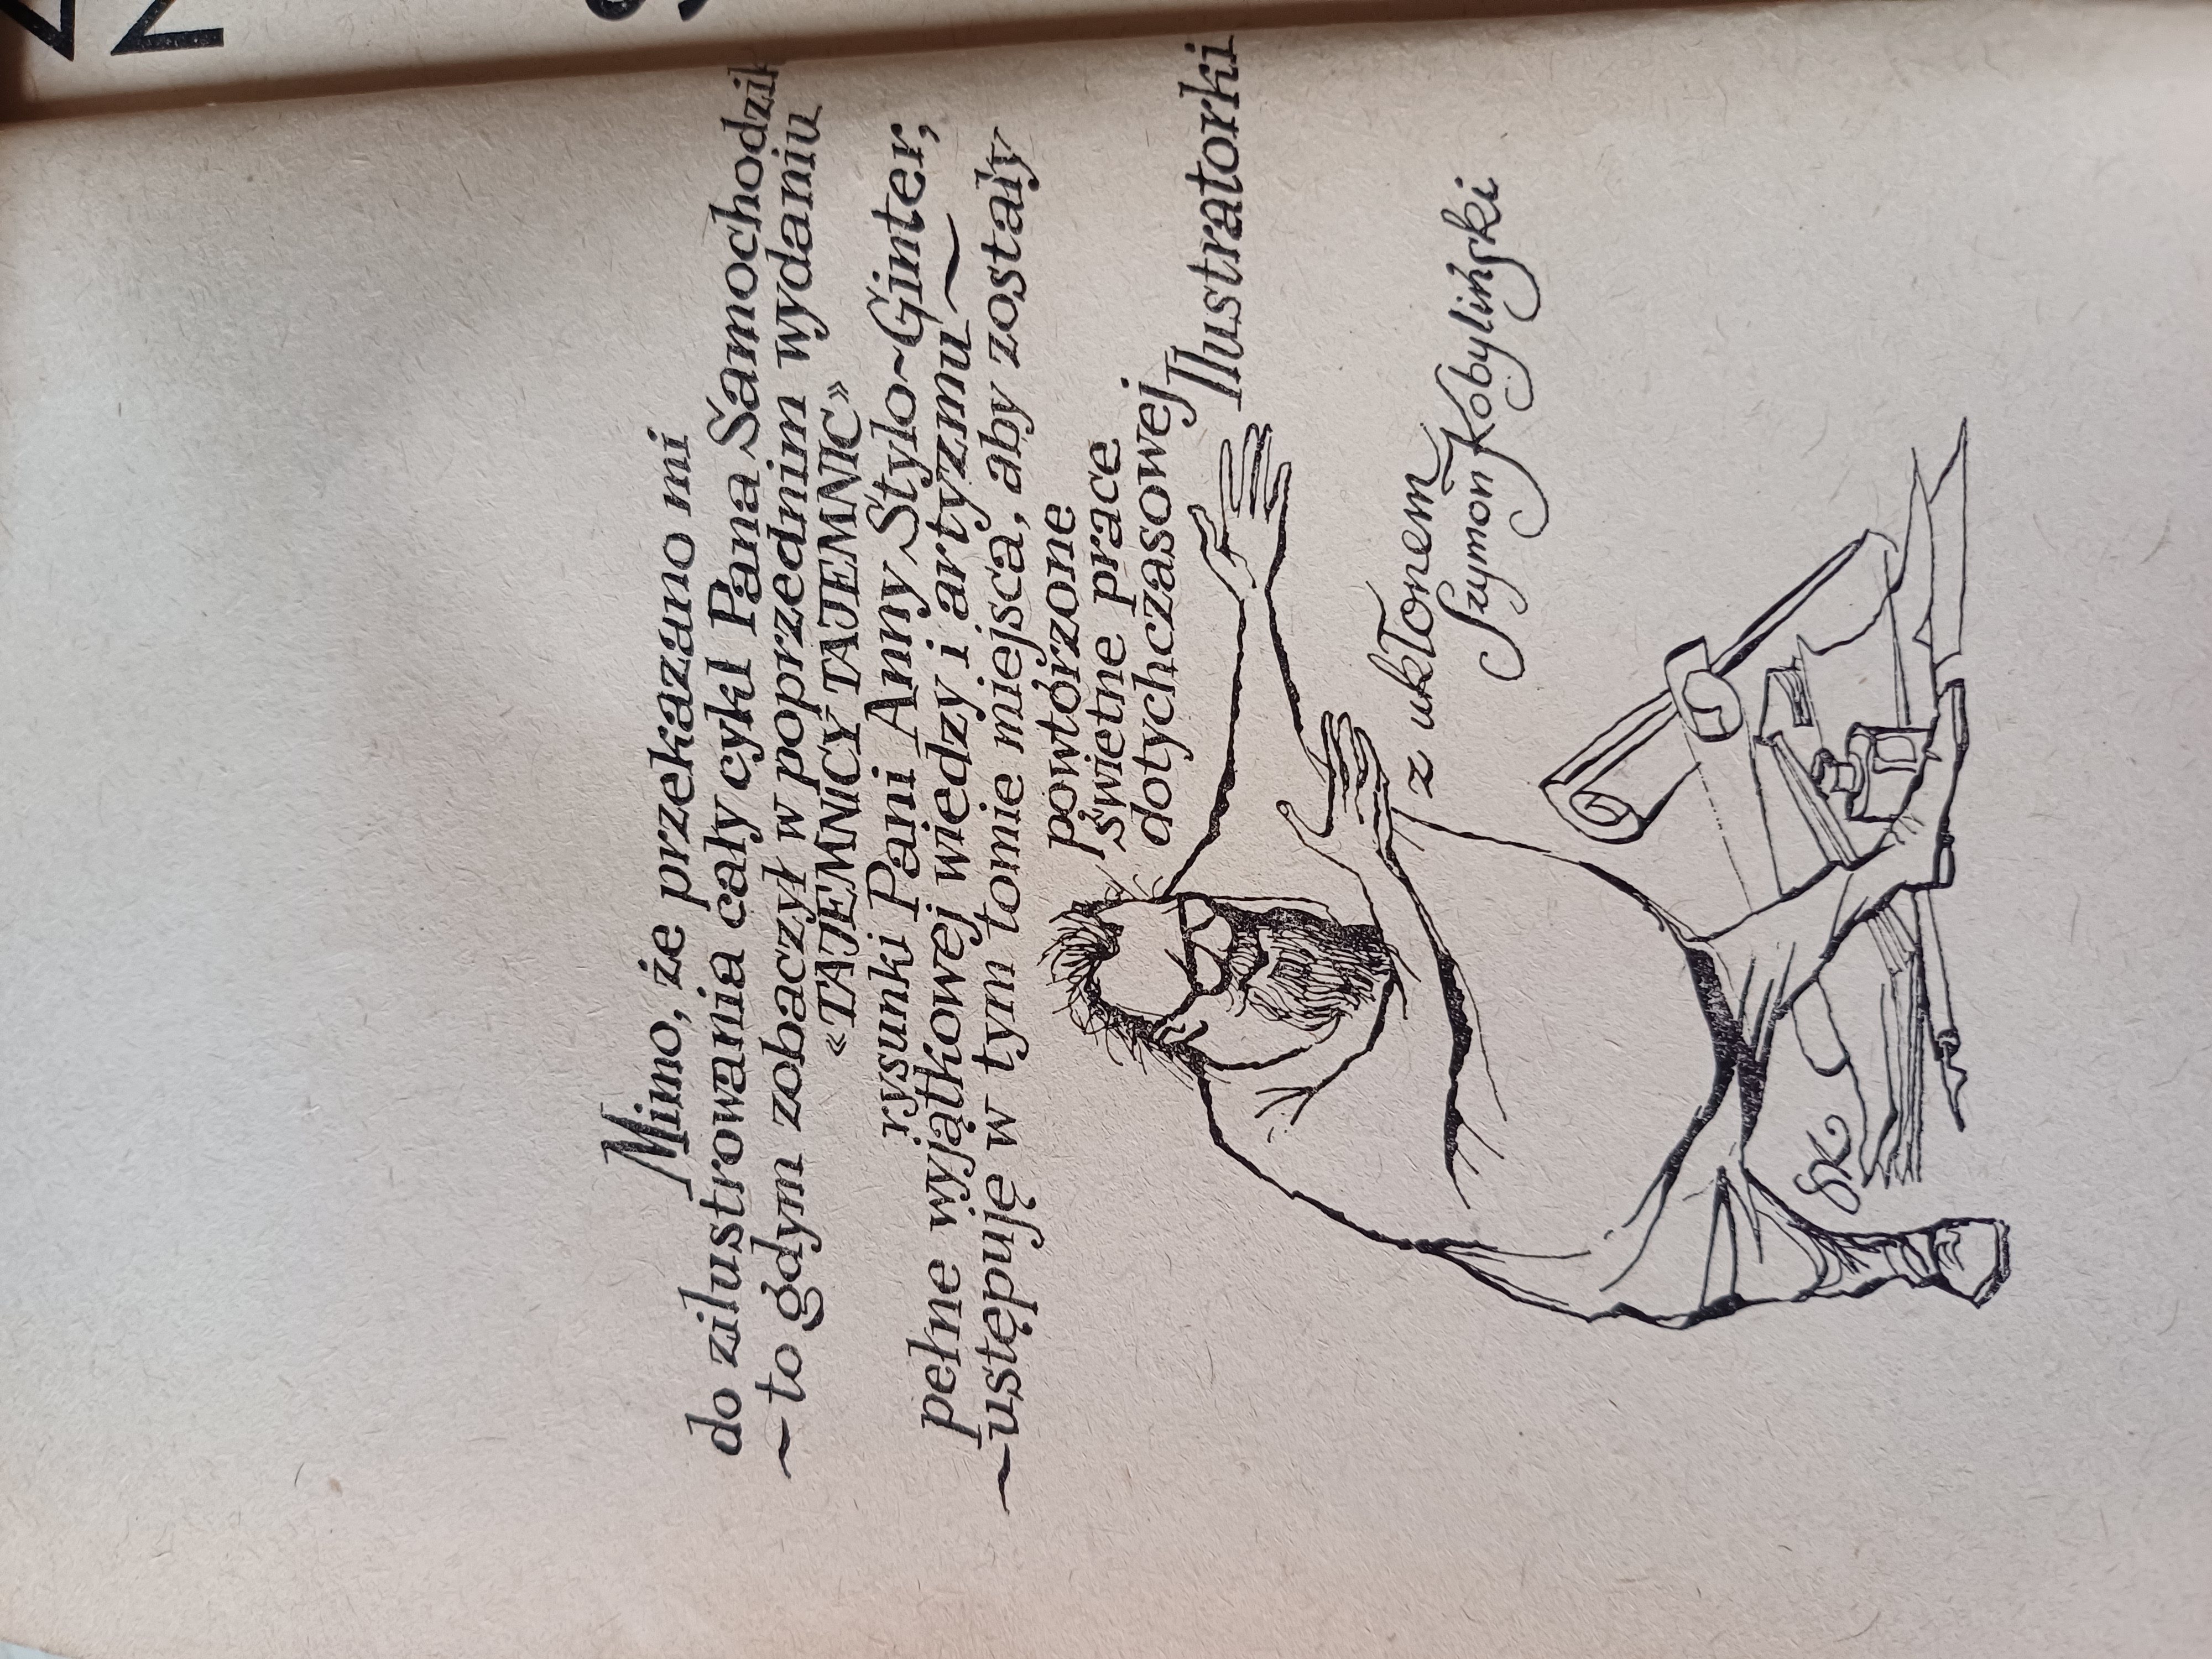 Mimo, że przekazano mi
do zilustrowania cały cykl Pana Samochodzik
~ to gdym zobaczył w poprzednim wydaniu
«TAJEMNICY TAJEMNIC»
rysunki Pani Anny Stylo~Ginter,
pełne wyjątkowej wiedzy i artyzmu ~
~ustępuję w tym tomie miejsca, aby zostały
powtórzone
świetne prace
dotychczasowej
Ilustratorki
z ukłonem
Szymon Kobyliński
SK